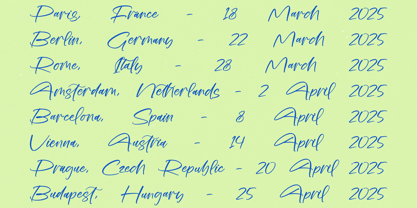 Paris, France - 18 March 2025
Berlin, Germany - 22 March 2025
Rome, Italy - 28 March 2025
Amsterdam, Netherlands - 2 April 2025
Barcelona, Spain - 8 April 2025
Vienna, Austria - 14 April 2025
Prague, Czech Republic - 20 April 2025
Budapest, Hungary - 25 April 2025